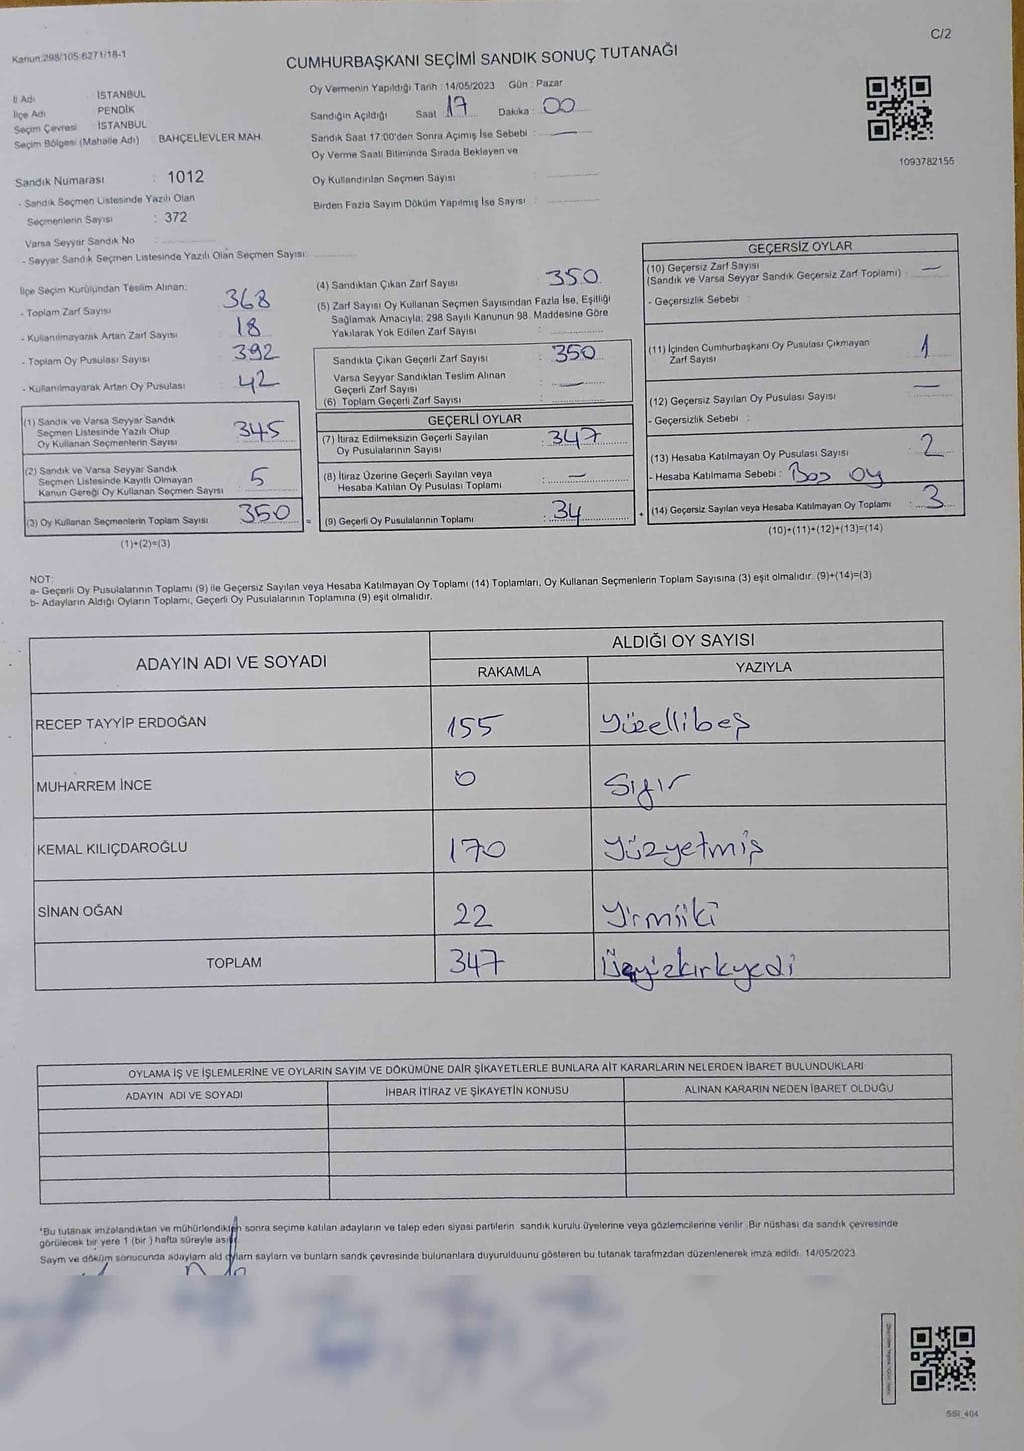 Kanun:298/105:6271/18-1
C/2
CUMHURBAŞKANI SEÇİMİ SANDIK SONUÇ TUTANAĞI
İl Adı : İSTANBUL
İlçe Adı : PENDİK
Seçim Çevresi : İSTANBUL
Seçim Bölgesi (Mahalle Adı) : BAHÇELİEVLER MAH.
Oy Vermenin Yapıldığı Tarih : 14/05/2023 Gün : Pazar
Sandığın Açıldığı Saat 17 Dakika : 00
Sandık Saat 17:00'den Sonra Açımış İse Sebebi : —
Oy Verme Saati Bitiminde Sırada Bekleyen ve
Oy Kullandırılan Seçmen Sayısı
Birden Fazla Sayım Döküm Yapılmış İse Sayısı :
1093782155
Sandık Numarası : 1012
- Sandık Seçmen Listesinde Yazılı Olan
Seçmenlerin Sayısı : 372
Varsa Seyyar Sandık No :
- Seyyar Sandık Seçmen Listesinde Yazılı Olan Seçmen Sayısı:
İlçe Seçim Kurulundan Teslim Alınan:
- Toplam Zarf Sayısı 368
- Kullanılmayarak Artan Zarf Sayısı 18
- Toplam Oy Pusulası Sayısı 392
- Kullanılmayarak Artan Oy Pusulası 42
(1) Sandık ve Varsa Seyyar Sandık
Seçmen Listesinde Yazılı Olup
Oy Kullanan Seçmenlerin Sayısı 345
(2) Sandık ve Varsa Seyyar Sandık
Seçmen Listesinde Kayıtlı Olmayan
Kanun Gereği Oy Kullanan Seçmen Sayısı 5
(3) Oy Kullanan Seçmenlerin Toplam Sayısı 350
(1)+(2)=(3)
(4) Sandıktan Çıkan Zarf Sayısı 350
(5) Zarf Sayısı Oy Kullanan Seçmen Sayısından Fazla İse, Eşitliği
Sağlamak Amacıyla; 298 Sayılı Kanunun 98. Maddesine Göre
Yakılarak Yok Edilen Zarf Sayısı :
Sandıkta Çıkan Geçerli Zarf Sayısı : 350
Varsa Seyyar Sandıktan Teslim Alınan
Geçerli Zarf Sayısı : —
(6) Toplam Geçerli Zarf Sayısı :
GEÇERLİ OYLAR
(7) İtiraz Edilmeksizin Geçerli Sayılan
Oy Pusulalarının Sayısı : 347
(8) İtiraz Üzerine Geçerli Sayılan veya
Hesaba Katılan Oy Pusulası Toplamı : —
= (9) Geçerli Oy Pusulalarının Toplamı : 34
GEÇERSİZ OYLAR
(10) Geçersiz Zarf Sayısı
(Sandık ve Varsa Seyyar Sandık Geçersiz Zarf Toplamı) : —
- Geçersizlik Sebebi :
(11) İçinden Cumhurbaşkanı Oy Pusulası Çıkmayan
Zarf Sayısı 1
(12) Geçersiz Sayılan Oy Pusulası Sayısı —
- Geçersizlik Sebebi :
(13) Hesaba Katılmayan Oy Pusulası Sayısı 2
- Hesaba Katılmama Sebebi : Boş oy
+ (14) Geçersiz Sayılan veya Hesaba Katılmayan Oy Toplamı : 3
(10)+(11)+(12)+(13)=(14)
NOT:
a- Geçerli Oy Pusulalarının Toplamı (9) ile Geçersiz Sayılan veya Hesaba Katılmayan Oy Toplamı (14) Toplamları, Oy Kullanan Seçmenlerin Toplam Sayısına (3) eşit olmalıdır. (9)+(14)=(3)
b- Adayların Aldığı Oyların Toplamı, Geçerli Oy Pusulalarının Toplamına (9) eşit olmalıdır.
ADAYIN ADI VE SOYADI
ALDIĞI OY SAYISI
RAKAMLA YAZIYLA
RECEP TAYYİP ERDOĞAN 155 Yüzellibeş
MUHARREM İNCE 0 Sıfır
KEMAL KILIÇDAROĞLU 170 Yüzyetmiş
SİNAN OĞAN 22 Yirmiiki
TOPLAM 347 Üçyüzkırkyedi
OYLAMA İŞ VE İŞLEMLERİNE VE OYLARIN SAYIM VE DÖKÜMÜNE DAİR ŞİKAYETLERLE BUNLARA AİT KARARLARIN NELERDEN İBARET BULUNDUKLARI
ADAYIN ADI VE SOYADI İHBAR İTİRAZ VE ŞİKAYETİN KONUSU ALINAN KARARIN NEDEN İBARET OLDUĞU
*Bu tutanak imzalandıktan ve mühürlendikten sonra seçime katılan adayların ve talep eden siyasi partilerin sandık kurulu üyelerine veya gözlemcilerine verilir. Bir nüshası da sandık çevresinde
görülecek bir yere 1 (bir ) hafta süreyle asılır.
Sayım ve döküm sonucunda adayların ald oyların sayların ve bunların sandk çevresinde bulunanlara duyurulduunu gösteren bu tutanak tarafmzdan düzenlenerek imza edildi. 14/05/2023
SSI_404